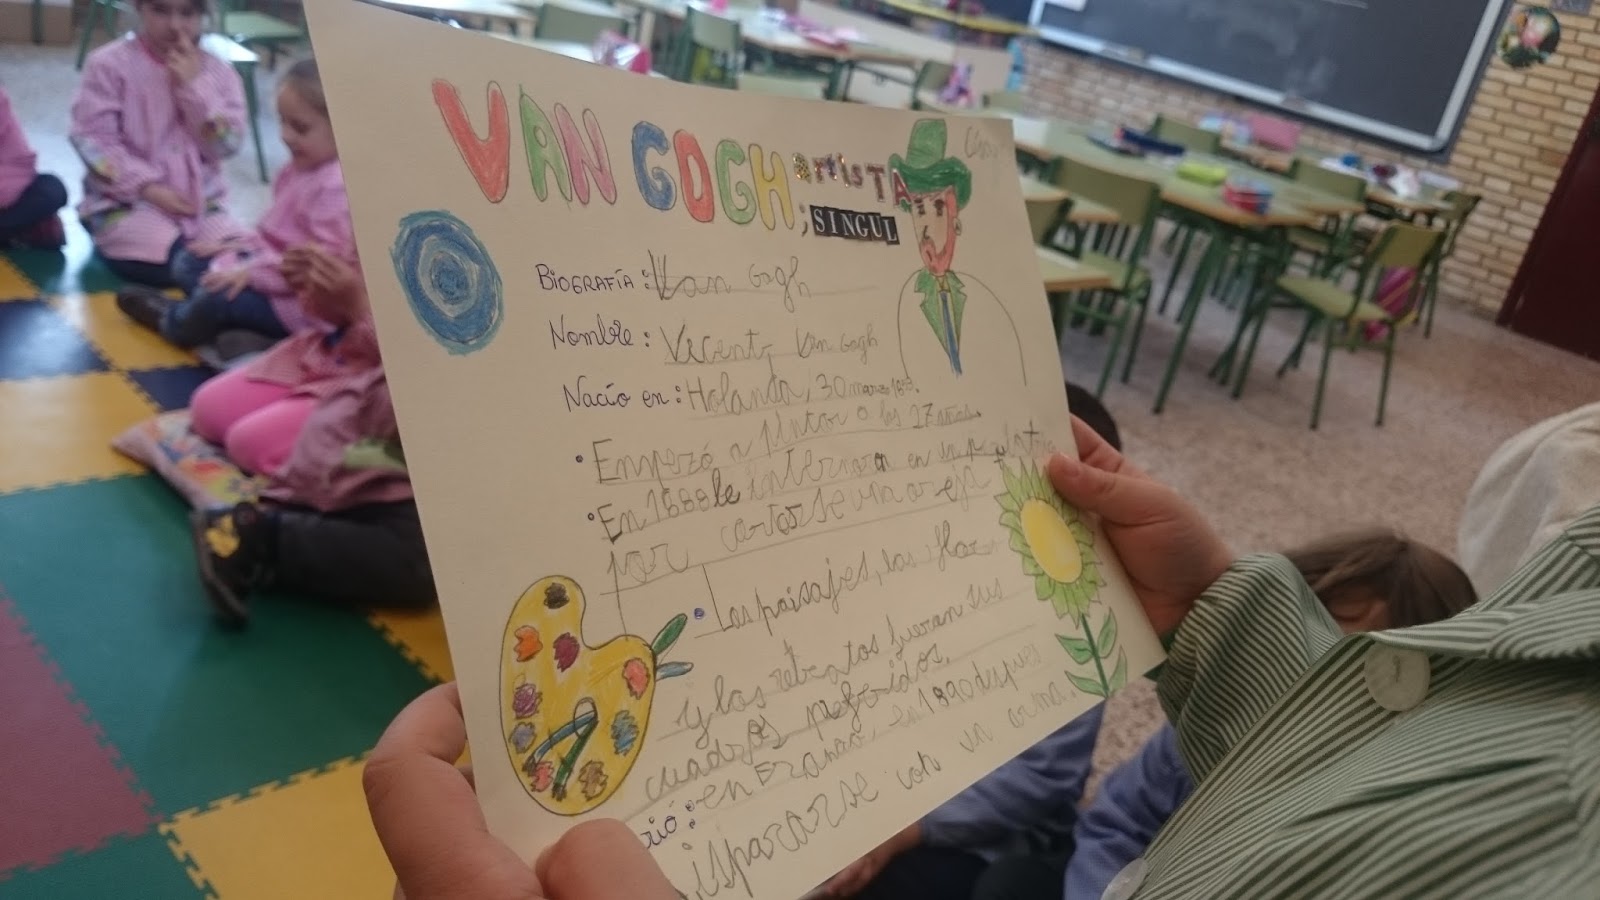 VAN GOGH artisTA
; SINGUL
BIOGRAFÍA: Van Gogh
Nombre: Vicent Van Gogh
Nacío en: Holanda, 30 marzo
• Empezó a pintar a los 27 años.
• En 1888 le internaron en un
por cortarse un oreja
• Los paisajes, las flores
y los retratos fueran sus
cuadros preferidos.
rió: en Francia, en 1890 después
disparcarse con un arma.